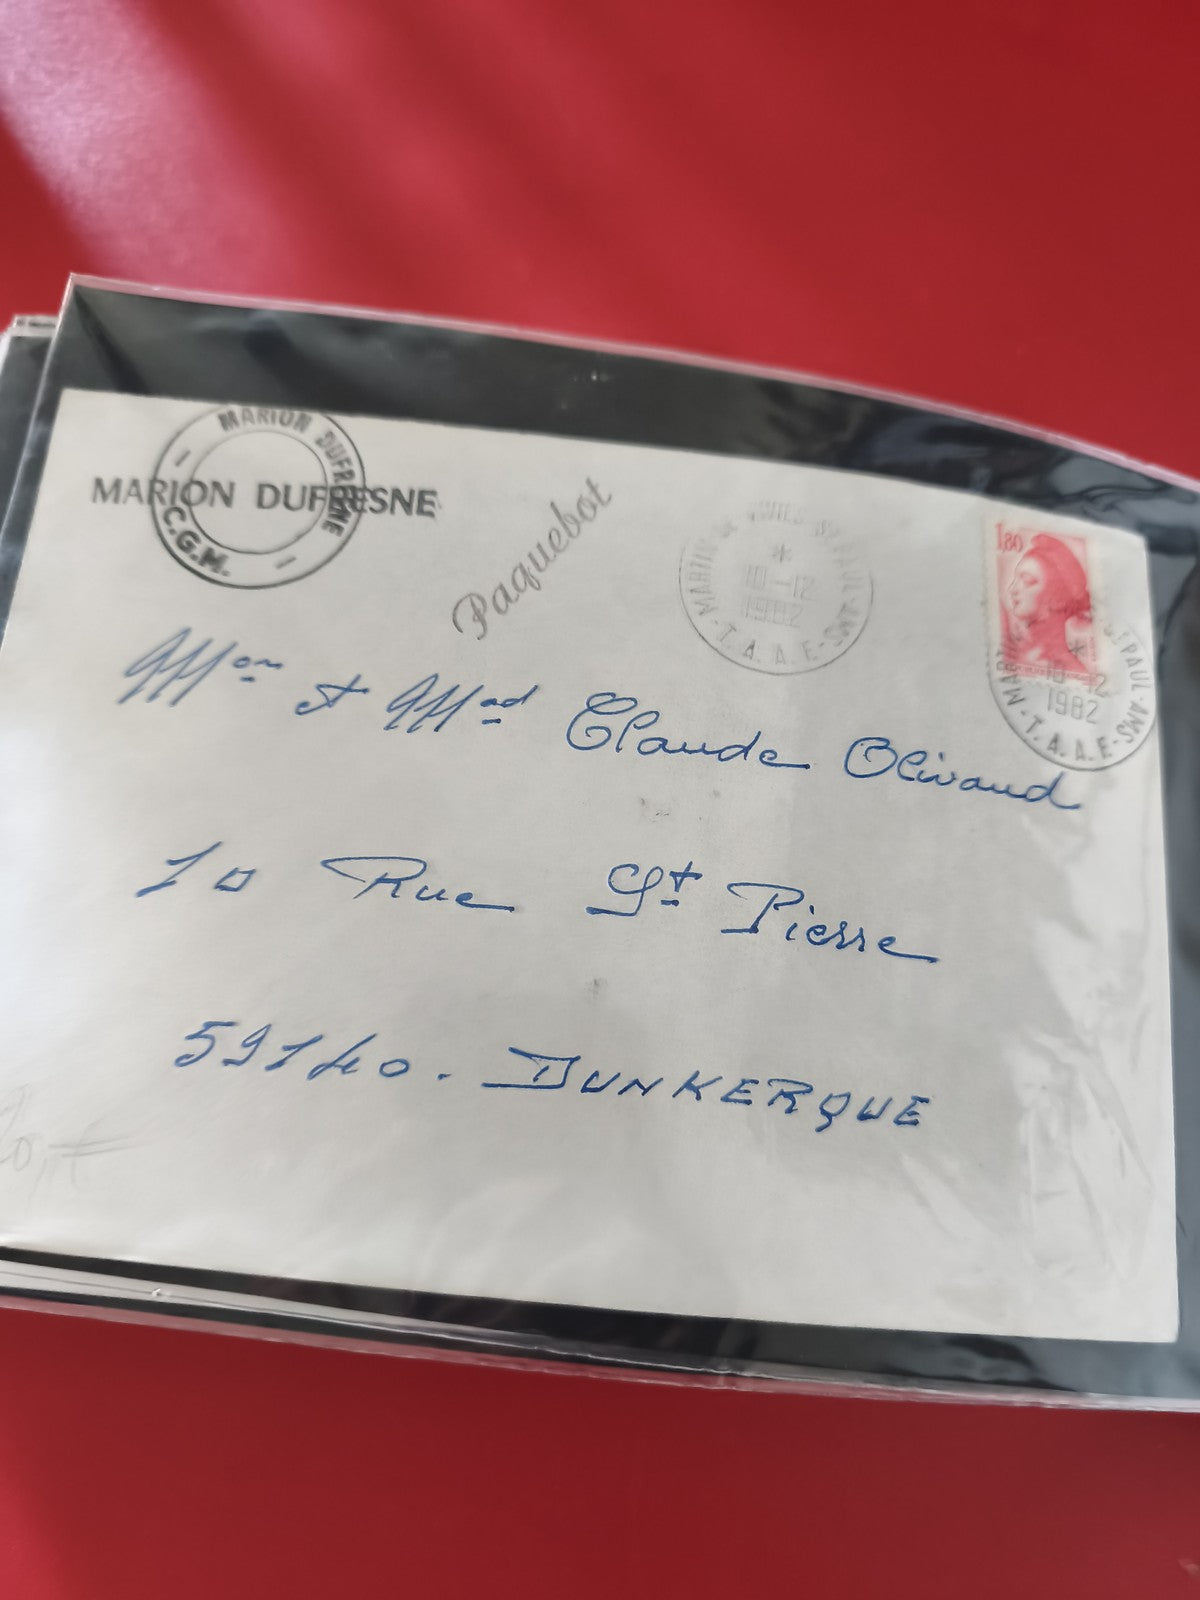 MARION DUFRESNE
C.G.M.
MARION DUFRESNE
Paquebot
MARTIN DE VIVIES ST PAUL-AMS
-12
1982
T.A.A.F.
1,80
ST PAUL-AMS
1982
T.A.A.F.
Mon et Mad Claude Olivaud
10 Rue St Pierre
59140. DUNKERQUE